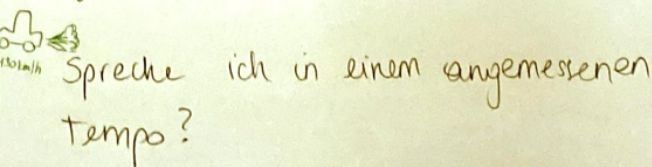 130 km/h
Spreche ich in einem angemessenen
Tempo?